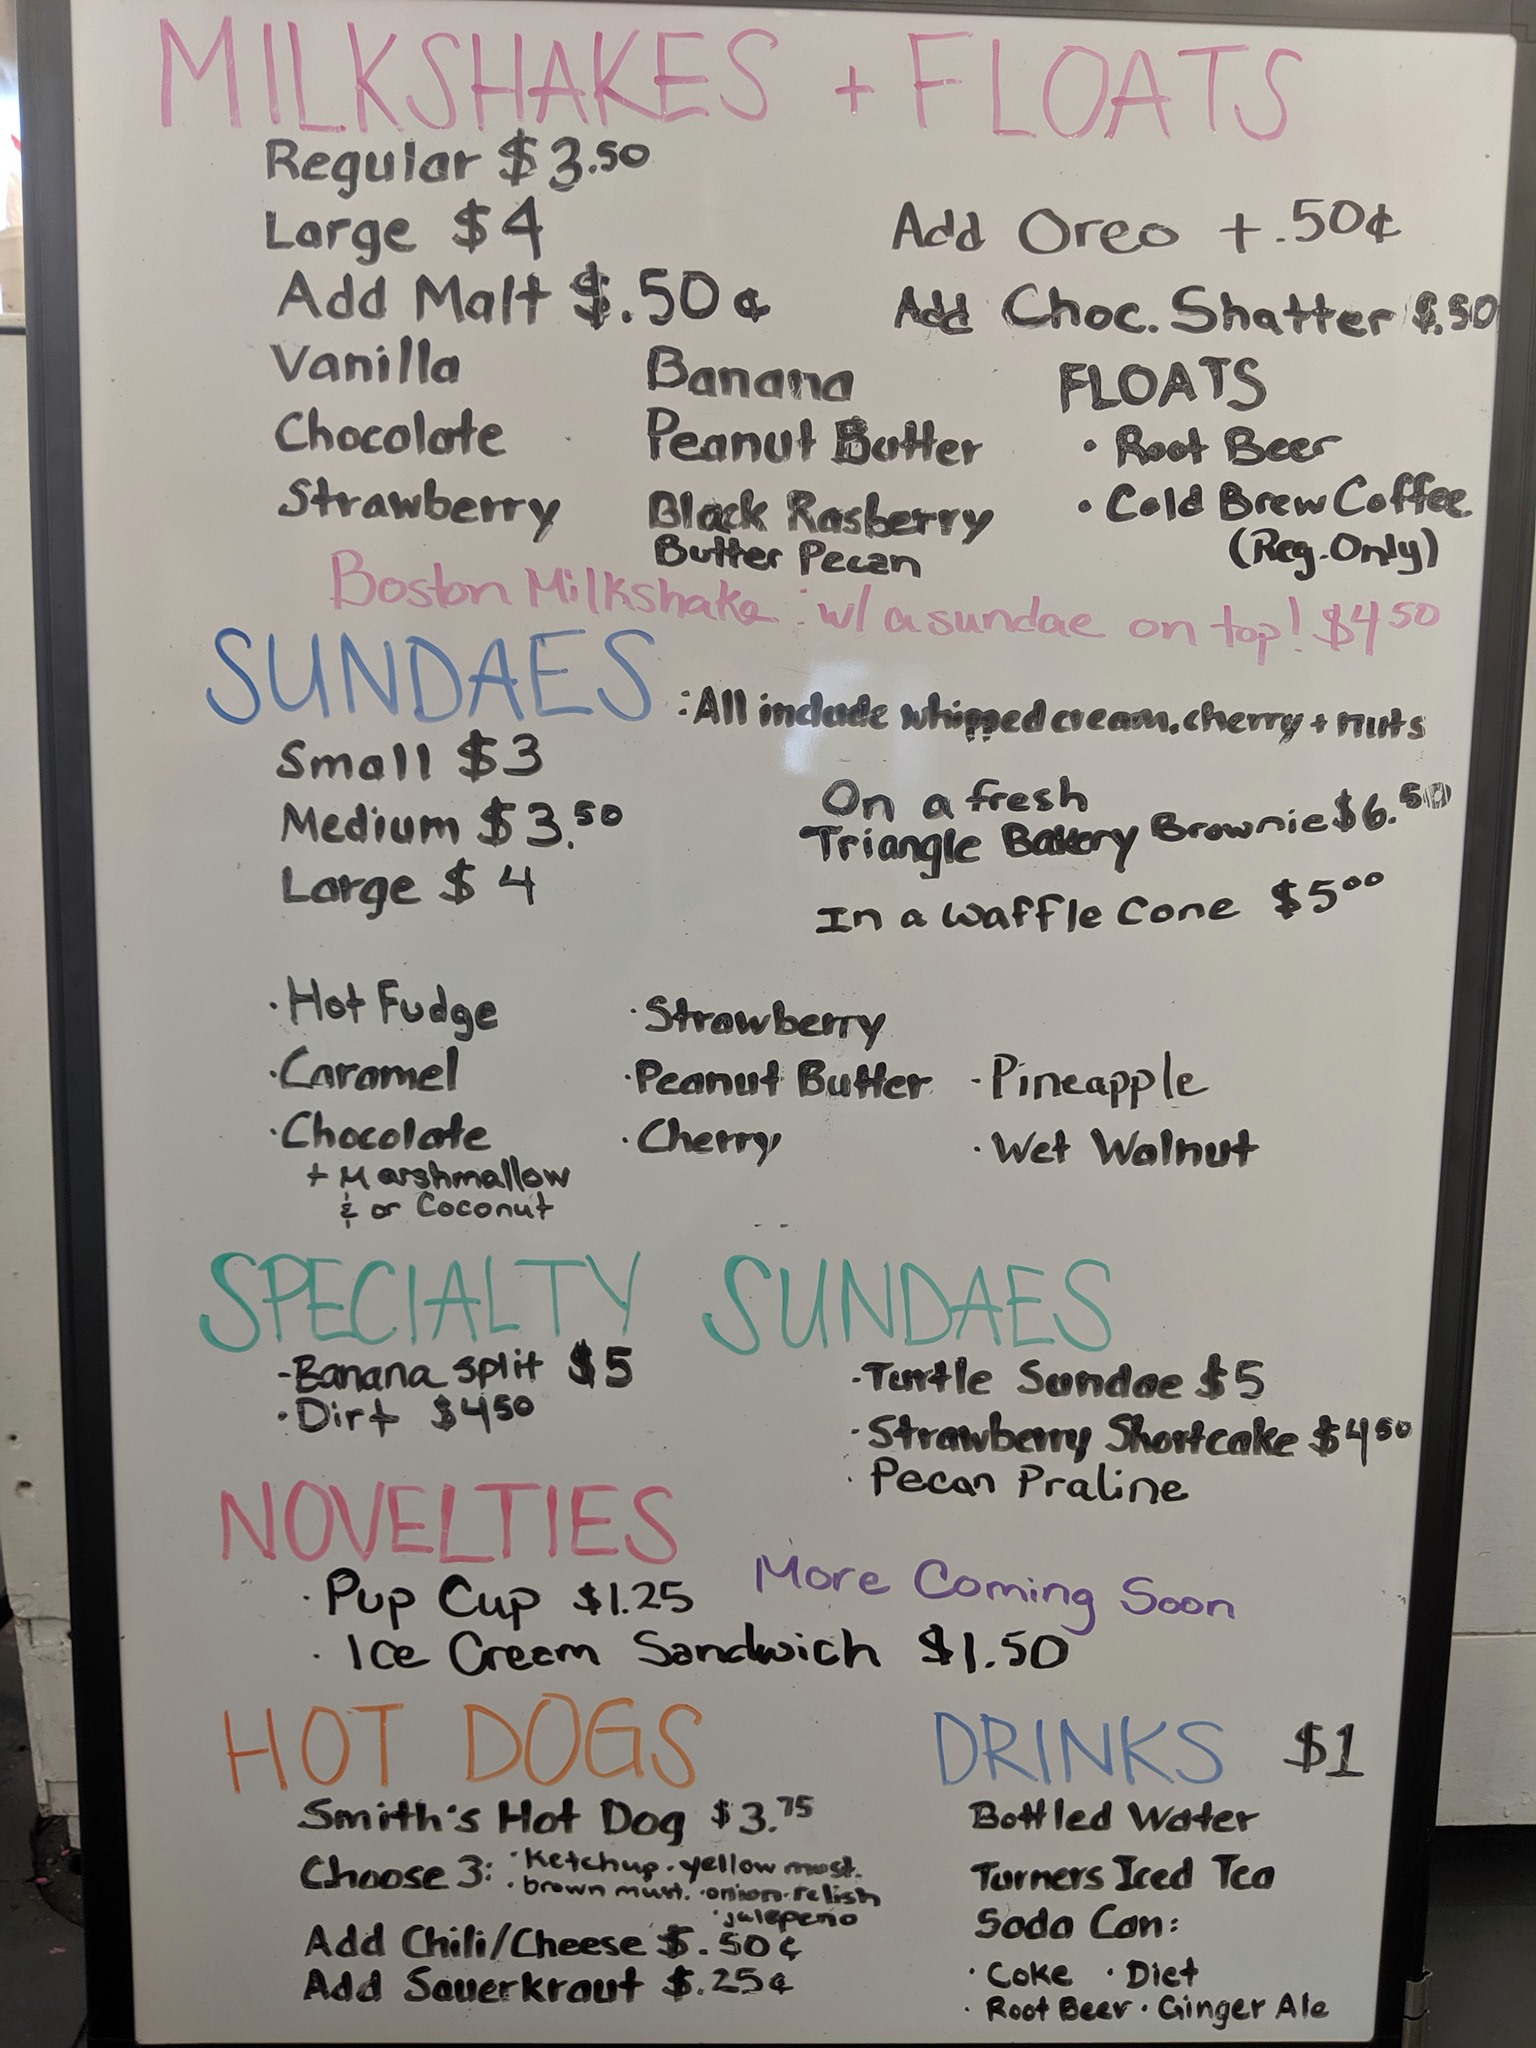 MILKSHAKES + FLOATS
Regular $3.50
Large $4
Add Malt $.50¢
Add Oreo +.50¢
Add Choc. Shatter $.50
Vanilla
Chocolate
Strawberry
Banana
Peanut Butter
Black Rasberry
Butter Pecan
FLOATS
· Root Beer
· Cold Brew Coffee
(Reg. Only)
Boston Milkshake: w/ a sundae on top! $4.50
SUNDAES : All include whipped cream, cherry + nuts
Small $3
Medium $3.50
Large $4
On a fresh
Triangle Bakery Brownie $6.50
In a Waffle Cone $5.00
· Hot Fudge
· Caramel
· Chocolate
+ Marshmallow
& or Coconut
· Strawberry
· Peanut Butter
· Cherry
- Pineapple
· Wet Walnut
SPECIALTY SUNDAES
- Banana split $5
· Dirt $4.50
· Turtle Sundae $5
· Strawberry Shortcake $4.50
· Pecan Praline
NOVELTIES
More Coming Soon
· Pup Cup $1.25
· Ice Cream Sandwich $1.50
HOT DOGS
Smith's Hot Dog $3.75
Choose 3: · Ketchup · yellow must.
· brown must. · onion · relish
· jalepeno
Add Chili/Cheese $.50¢
Add Sauerkraut $.25¢
DRINKS $1
Bottled Water
Turners Iced Tea
Soda Can:
· Coke · Diet
· Root Beer · Ginger Ale